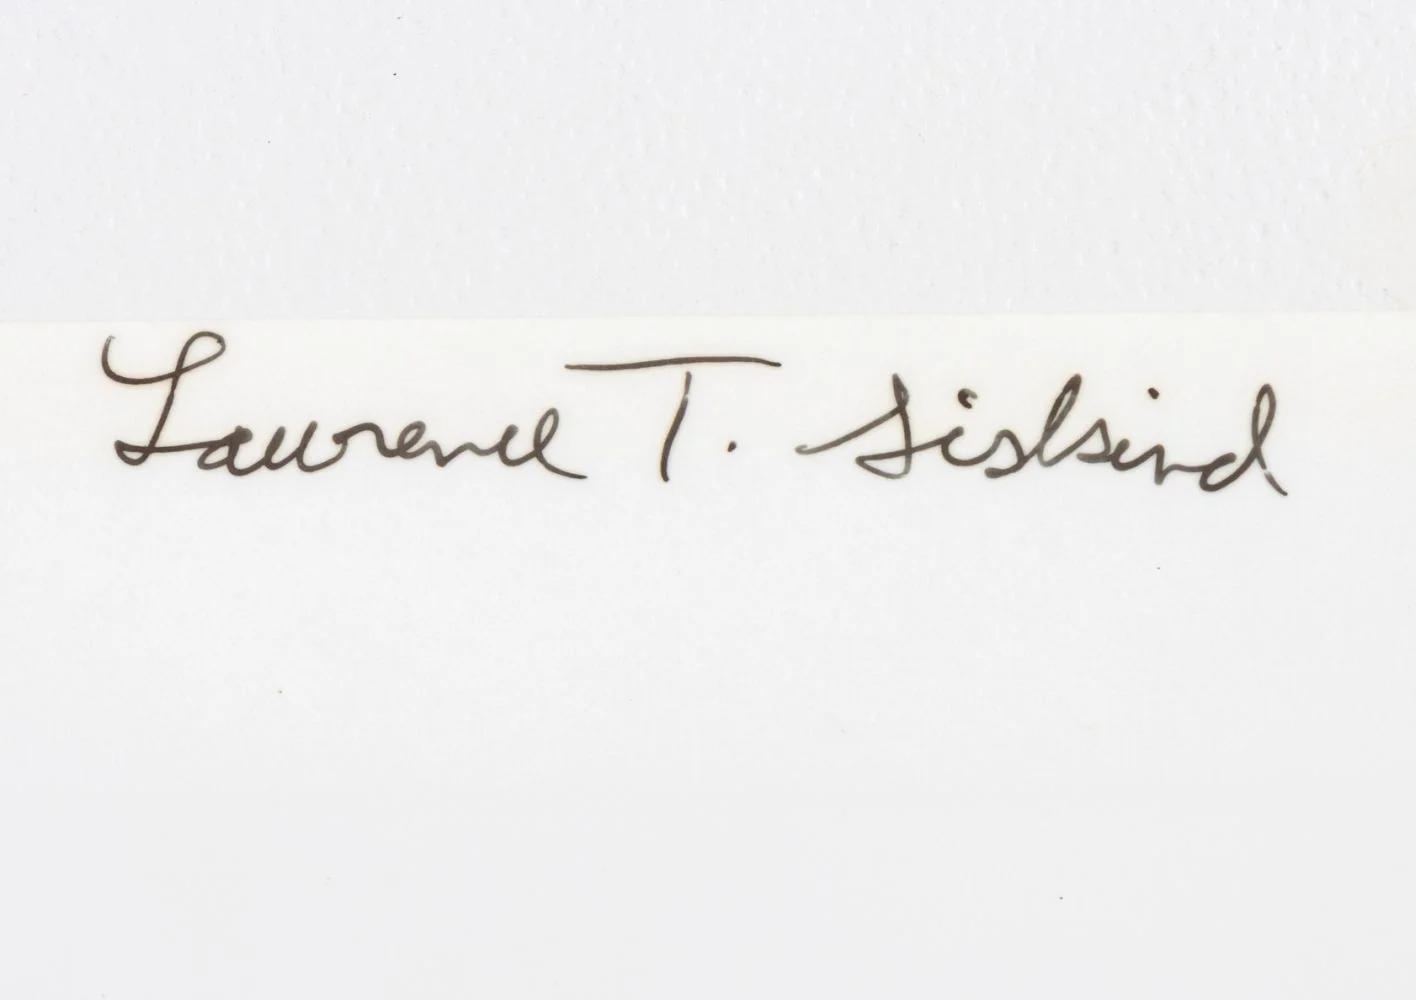 Laurence T. Sislsind